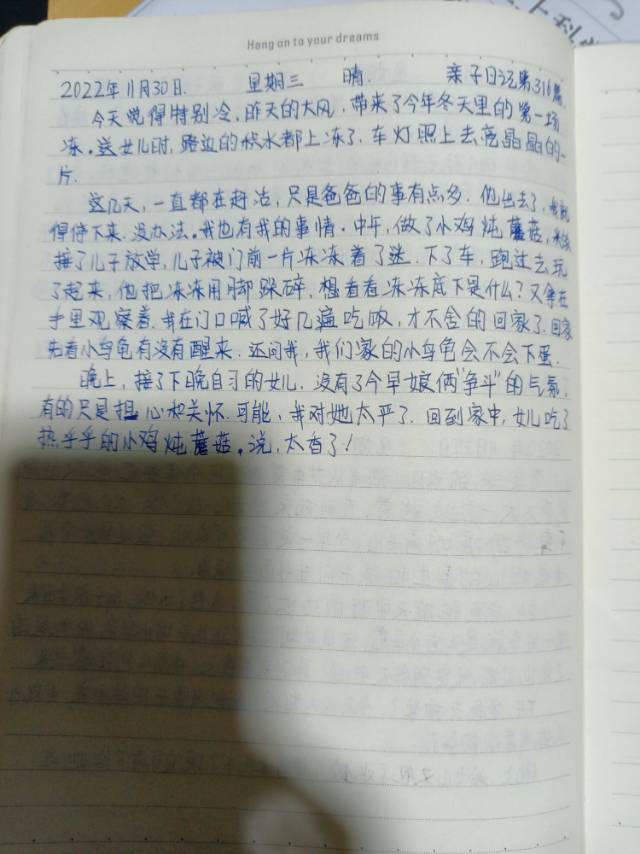 Hang on to your dreams
2022年11月30日. 星期三 晴. 亲子日记第310篇
今天觉得特别冷,昨天的大风,带来了今年冬天里的第一场
冻。送女儿时,路边的积水都上冻了.车灯照上去亮晶晶的一
片.
这几天,一直都在赶活,只是爸爸的事有点多.他出去了,我就
得停下来.没办法.我也有我的事情.中午,做了小鸡炖蘑菇,
接了儿子放学,儿子被门前一片冻冻着了迷.下了车,跑过去玩
了起来,他把冻冻用脚跺碎,想看看冻冻底下是什么?又拿在
手里观察着.我在门口喊了好几遍吃饭,才不舍的回家了.回家
先看小乌龟有没有醒来.还问我,我们家的小乌龟会不会下蛋.
晚上,接了下晚自习的女儿.没有了今早娘俩“争斗”的气氛,
有的只是担心和关怀.可能,我对她太严了.回到家中,女儿吃了
热乎乎的小鸡炖蘑菇。说,太香了!